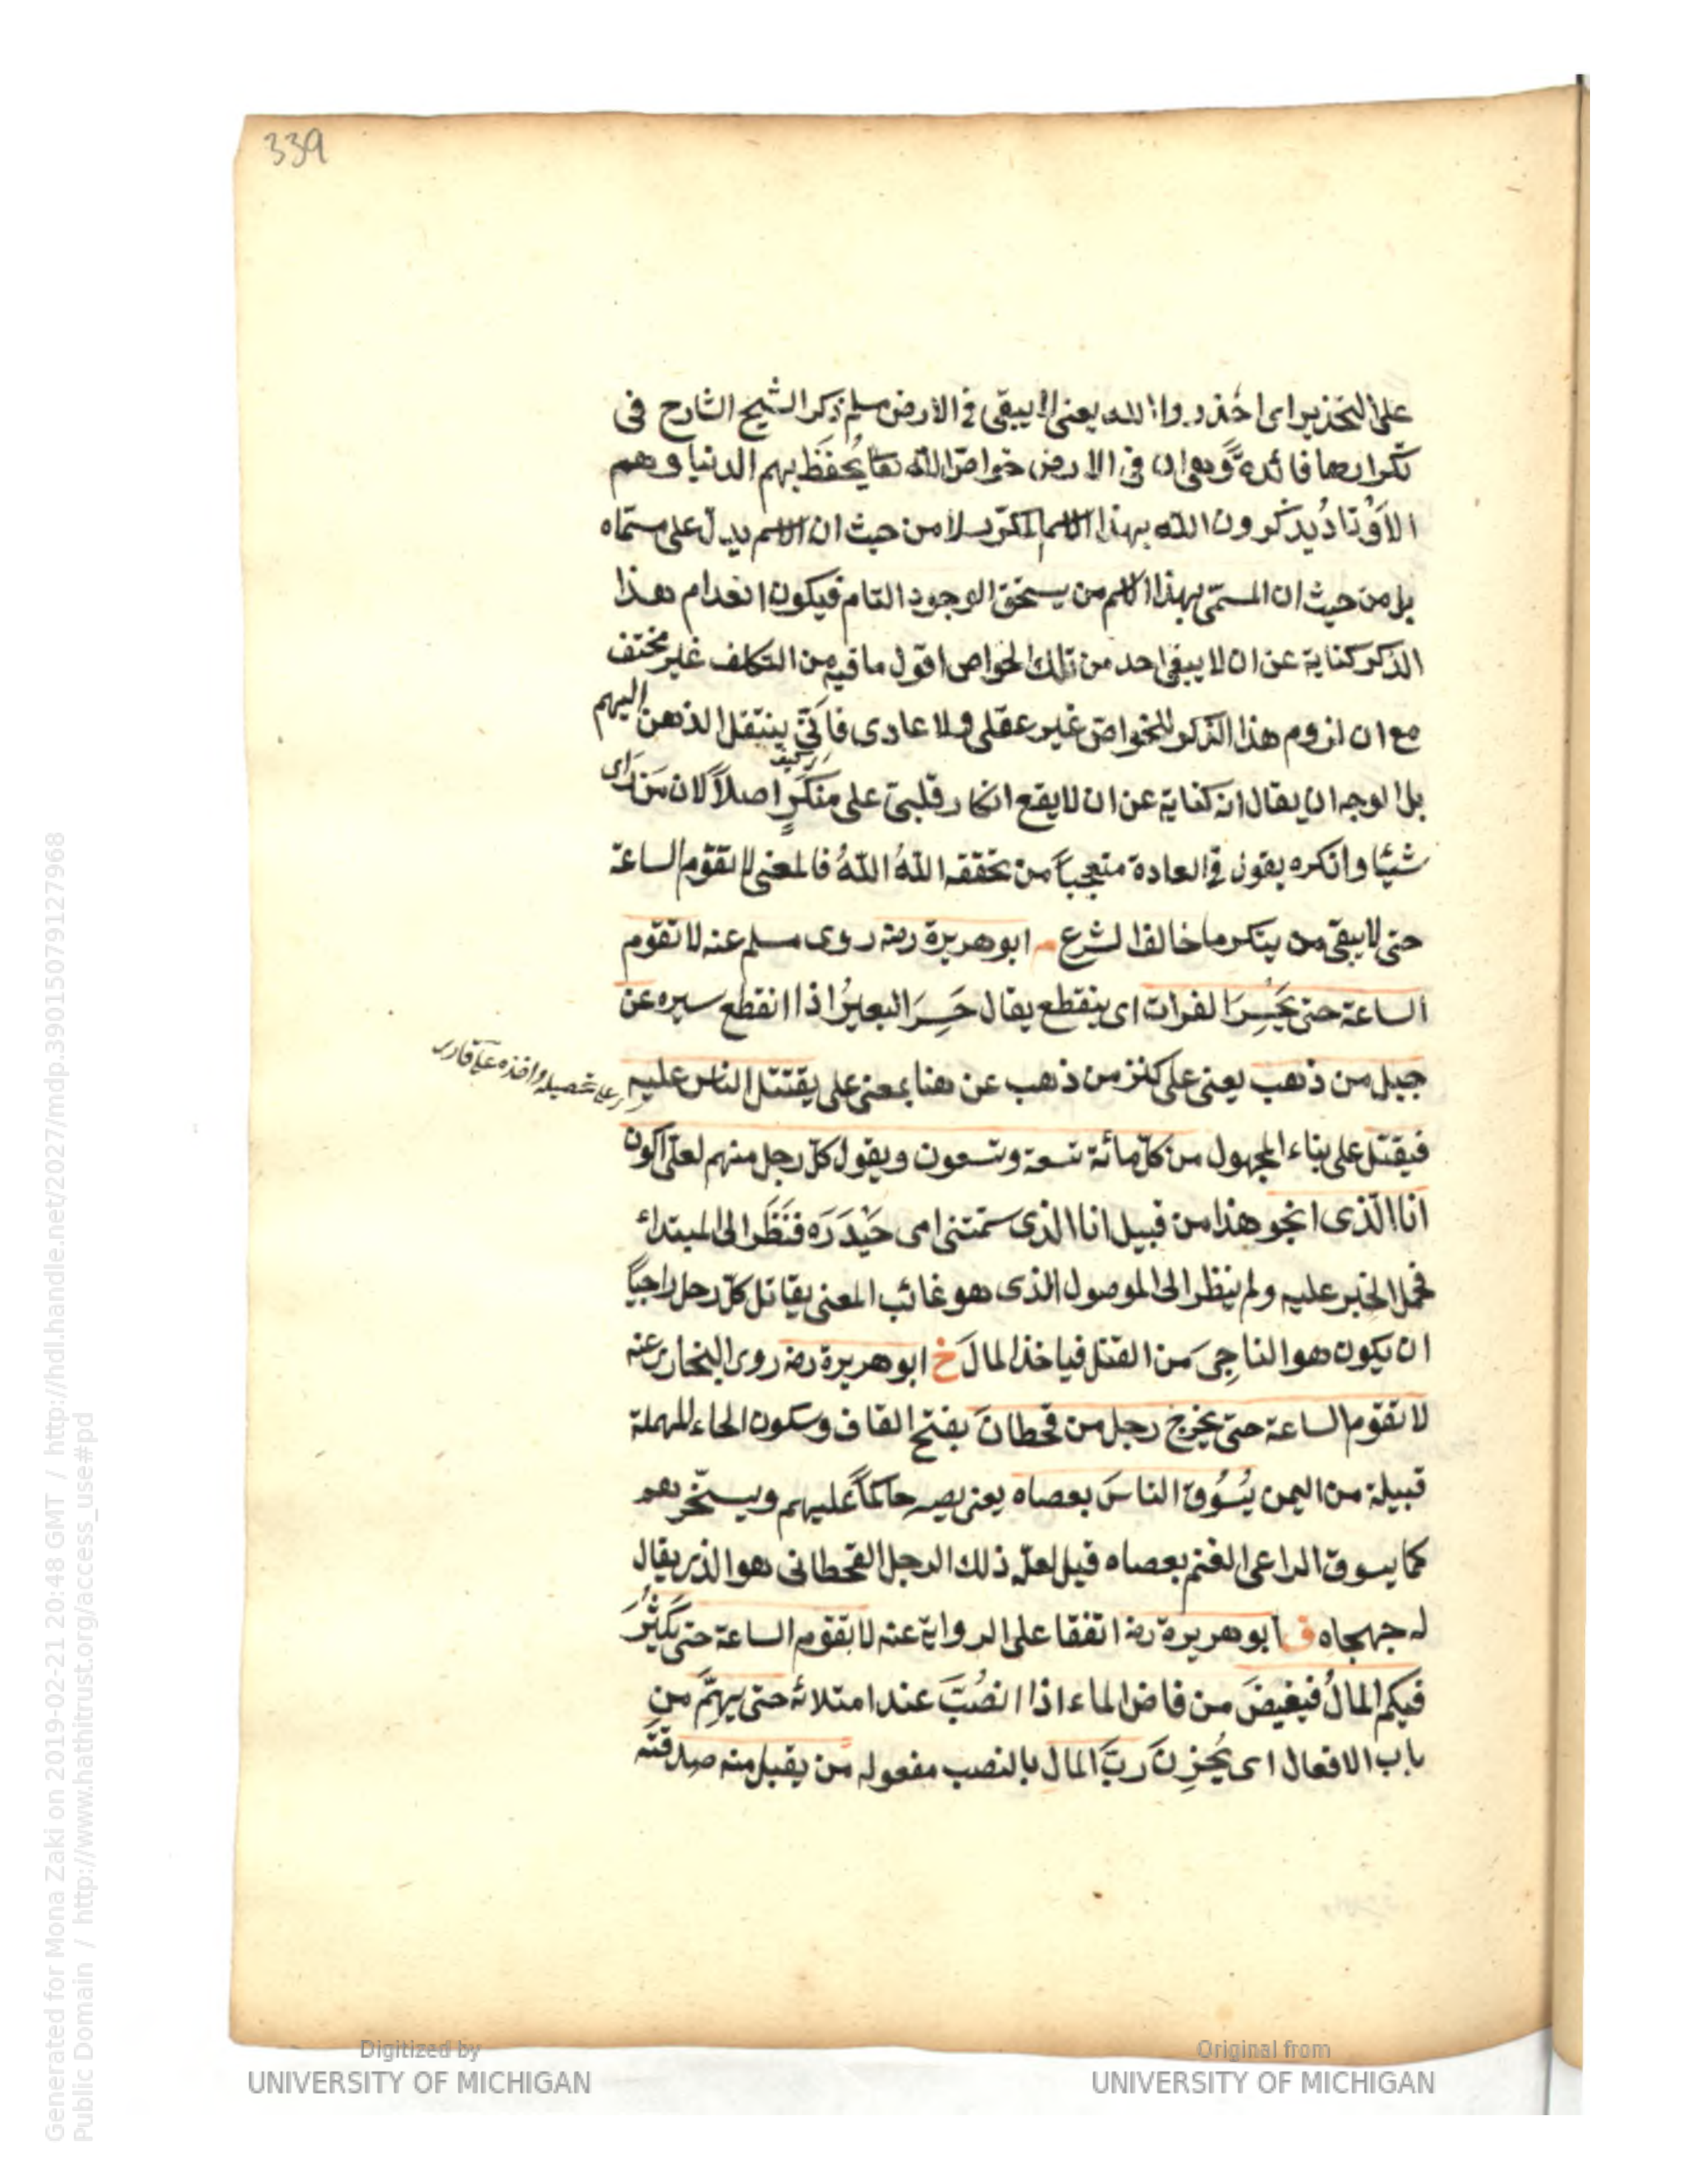 339
على التحذير اى احذروا الله يعنى لا يبقى فى الارض مسلم ذكر الشيخ الشارح فى
تكرارها فائدة وهو ان فى الارض خواص الله تعا يُحفَظ بهم الدنيا وهم
الاَوْتادُ يذكرون الله بهذا الاسم المكرر لا من حيث ان الاسم يدل على مسمّاه
بل من حيث ان المسمّى بهذا الاسم من يستحق الوجود التام فيكون انعدام هذا
الذكر كناية عن ان لا يبقى احد من تلك الخواص اقول ما فيه من التكلف غير مختف
مع ان لزوم هذا الذكر للخواص غير عقلى ولا عادى فانّى ينتقل الذهن اليهم
بل الوجه ان يقال انه كناية عن ان لا يقع انكار قلبىّ على منكَرٍ اصلاً لان مَن رأى
شيئا وانكره يقول فى العادة متعجباً من تحققه اللهُ اللهُ فالمعنى لا تقوم الساعة
حتى لا يبقى من ينكر ما خالف الشرع م ابو هريرة رضه روى مسلم عنه لا تقوم
الساعة حتى يَحْسِرَ الفرات اى ينقطع يقال حَسِرَ البعيرُ اذا انقطع سيره عن
جبل من ذهب يعنى على كنز من ذهب عن هنا بمعنى على يقتتل الناس عليه
فيقتل على بناء المجهول من كلّ مائة تسعة وتسعون ويقول كلّ رجل منهم لعلّى اكون
انا الّذى انجو هذا من قبيل انا الذى سمّتنى امى حَيْدَرَه فنَظَر الى المبتداء
فحمل الخبر عليه ولم ينظر الى الموصول الذى هو غائب المعنى يقاتل كلّ رجل راجياً
ان يكون هو الناجِىَ من القتل فياخذ المالَ خ ابو هريرة رضه روى البخارى عنه
لا تقوم الساعة حتى يخرج رجل من قحطانَ بفتح القاف وسكون الحاء المهملة
قبيلة من اليمن يَسُوق الناسَ بعصاه يعنى يصير حاكماً عليهم ويسخّرهم
كما يسوق الراعى الغنم بعصاه قيل لعلّ ذلك الرجل القحطانى هو الذى يقال
له جهجاه ق ابو هريرة رضه اتفقا على الرواية عنه لا تقوم الساعة حتى يَكثُرَ
فيكم المالُ فيفيضَ من فاض الماء اذا انصُبّ عند امتلائه حتى يهِمَّ من
باب الافعال اى يُحزِنَ ربَّ المال بالنصب مفعوله من يقبل منه صدقته
Digitized by
UNIVERSITY OF MICHIGAN
Original from
UNIVERSITY OF MICHIGAN
Generated for Mona Zaki on 2019-02-21 20:48 GMT / http://hdl.handle.net/2027/mdp.39015079127968
Public Domain / http://www.hathitrust.org/access_use#pd